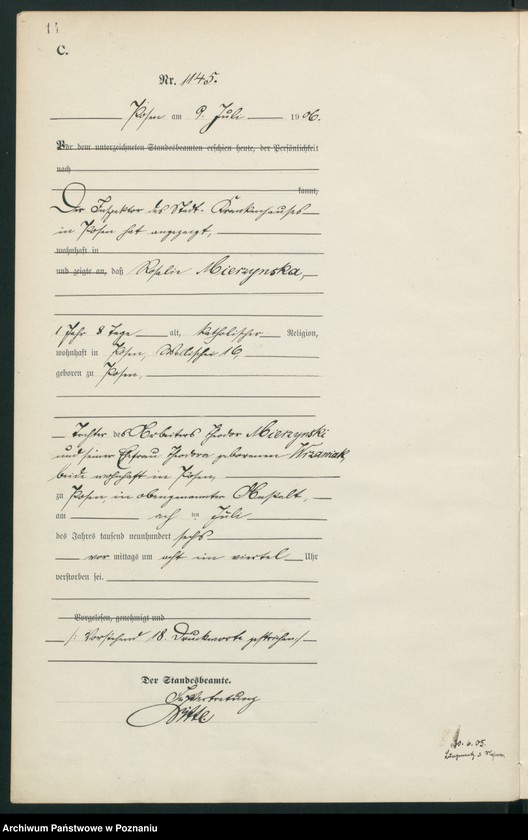 11
C.
Nr. 1145.
Posen am 9. Juli 1906.
Vor dem unterzeichneten Standesbeamten erschien heute, der Persönlichkeit
nach
kannt,
Der Inspektor des Stadt-Krankenhauses
in Posen hat angezeigt,
wohnhaft in
und zeigte an, daß Rosalie Mierzynska,
1 Jahr 8 Tage alt, katholischer Religion,
wohnhaft in Posen, Wallischei 16,
geboren zu Posen,
Tochter des Arbeiters Theodor Mierzynski
und seiner Ehefrau Theodora geborenen Wrzaniak,
beide wohnhaft in Posen,
zu Posen, in obengenannter Anstalt,
am acht ten Juli
des Jahres tausend neunhundert sechs
vor mittags um acht ein viertel Uhr
verstorben sei.
Vorgelesen, genehmigt und
/: Vorstehend 18 Druckworte gestrichen :/
Der Standesbeamte.
In Vertretung
Witte
05.
Archiwum Państwowe w Poznaniu